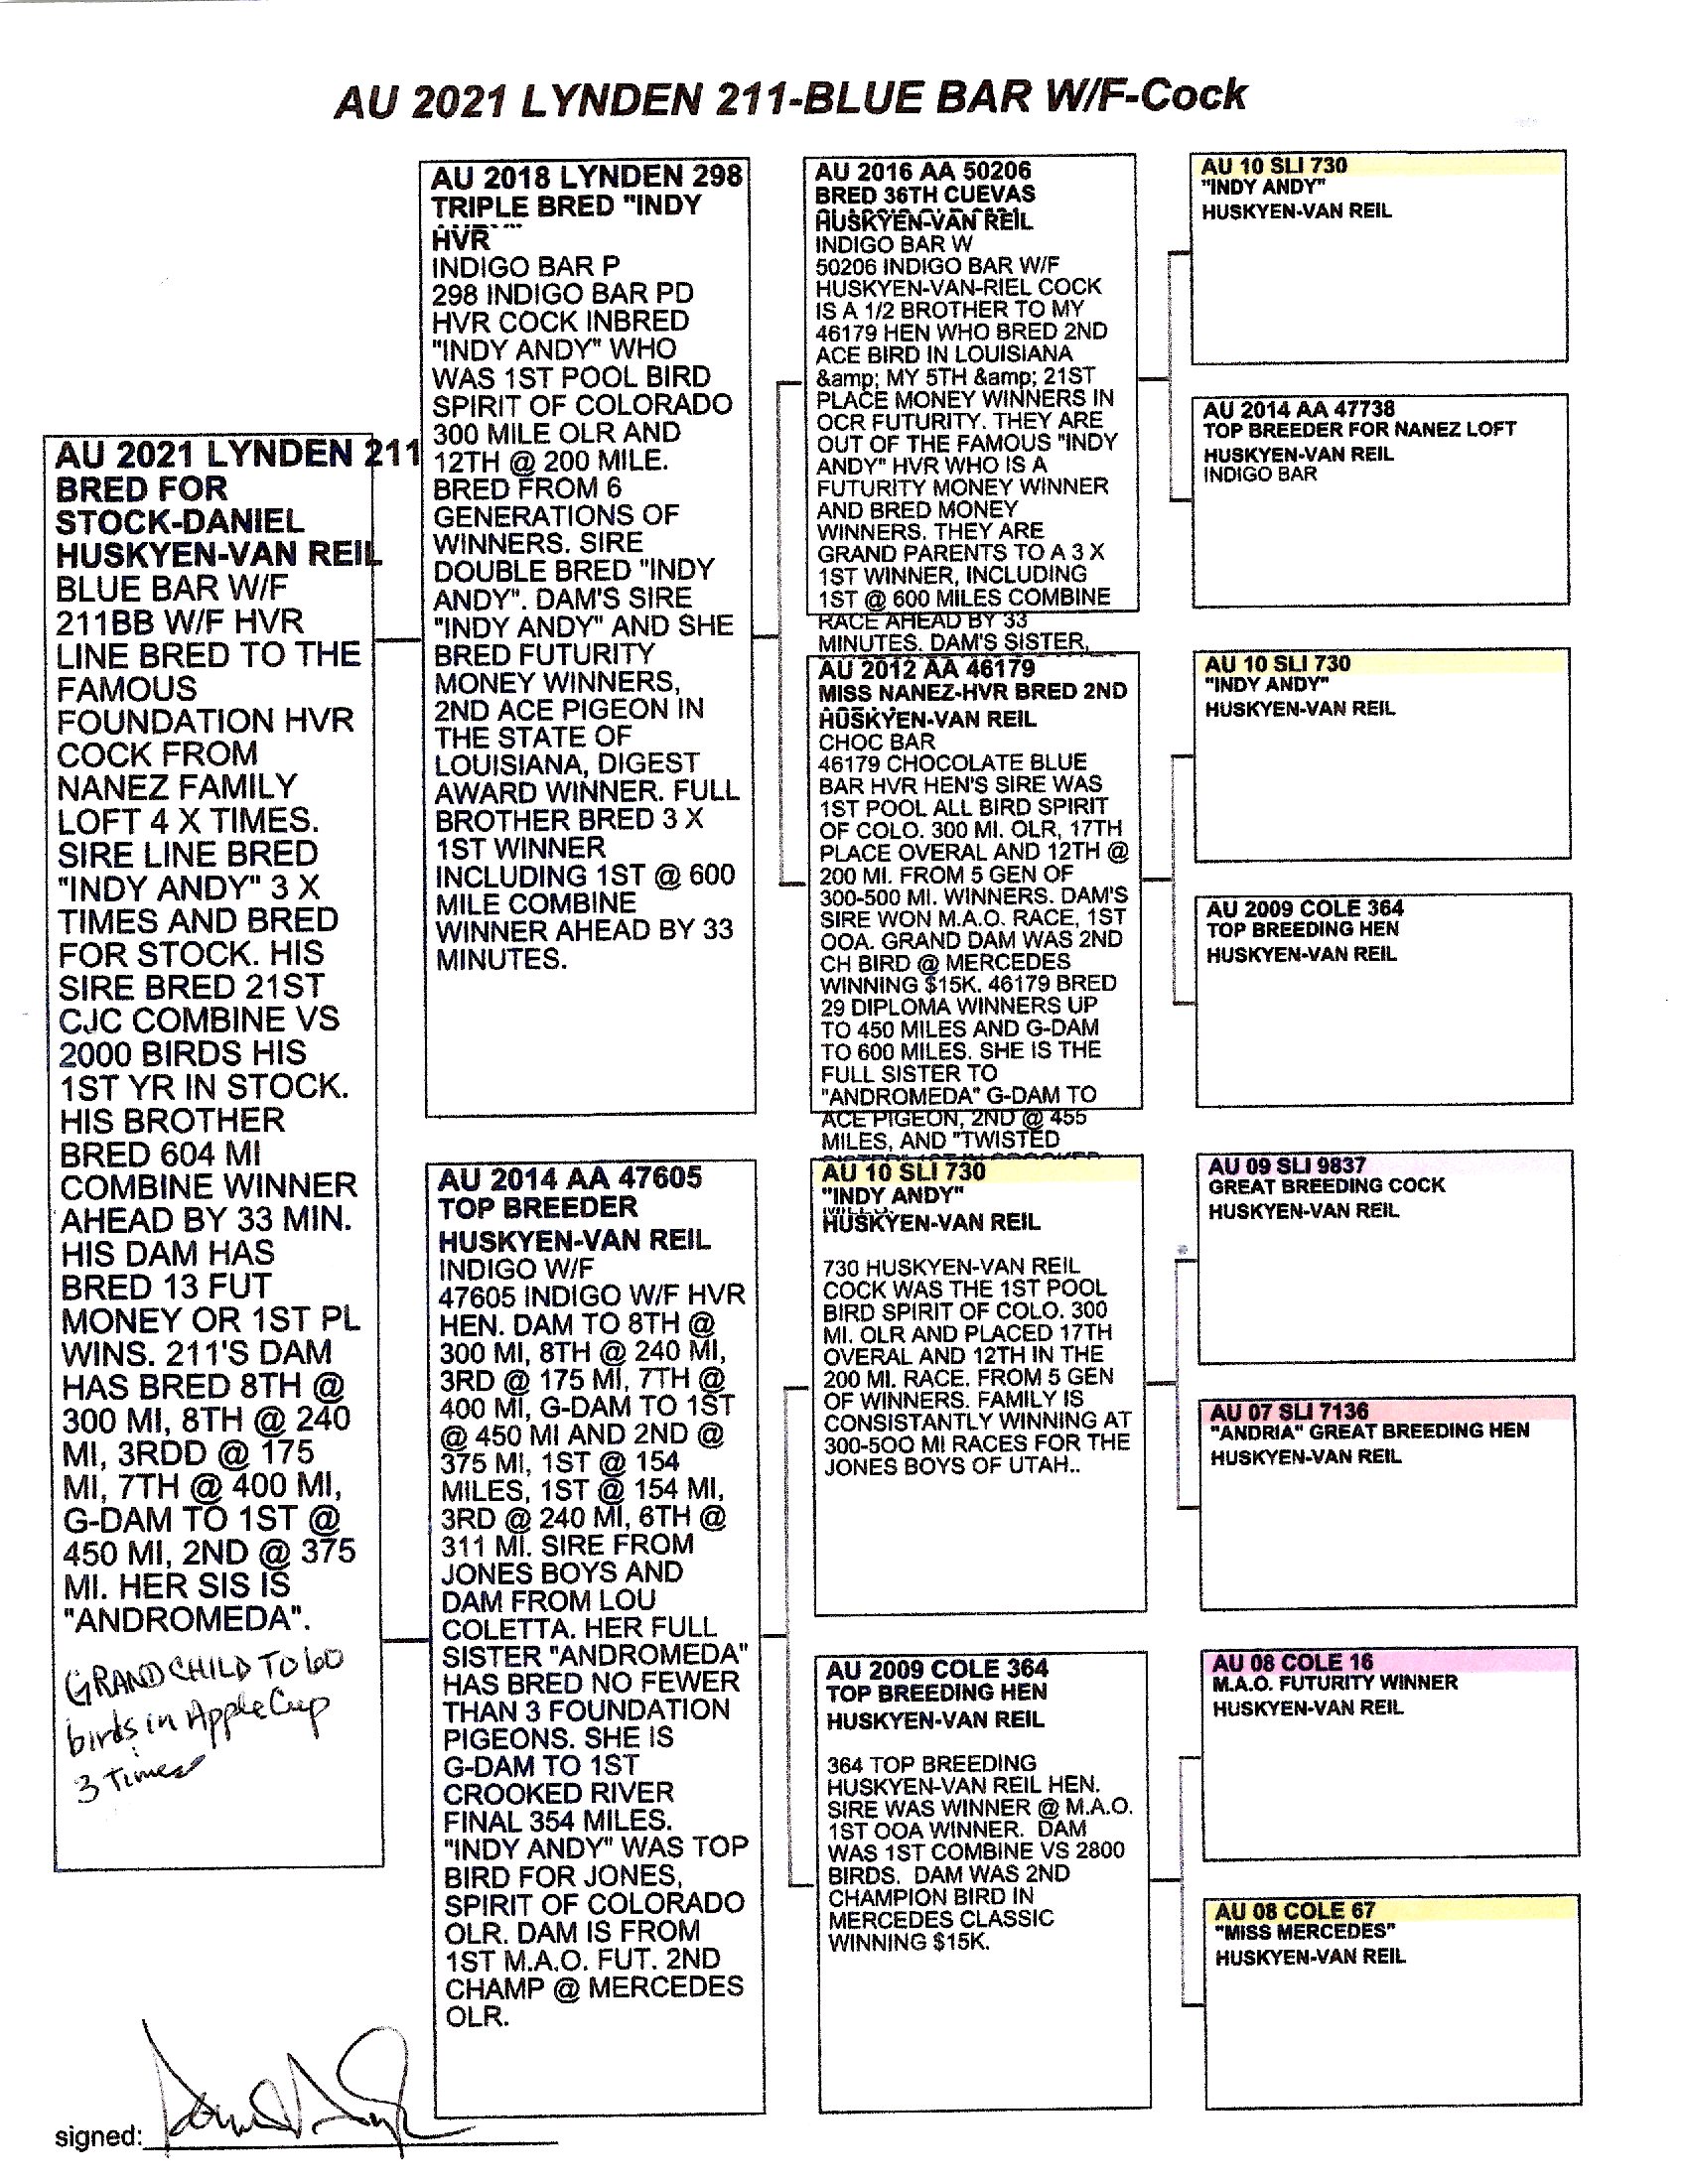 AU 2021 LYNDEN 211-BLUE BAR W/F-Cock
AU 2021 LYNDEN 211
BRED FOR
STOCK-DANIEL
HUSKYEN-VAN REIL
BLUE BAR W/F
211BB W/F HVR
LINE BRED TO THE
FAMOUS
FOUNDATION HVR
COCK FROM
NANEZ FAMILY
LOFT 4 X TIMES.
SIRE LINE BRED
"INDY ANDY" 3 X
TIMES AND BRED
FOR STOCK. HIS
SIRE BRED 21ST
CJC COMBINE VS
2000 BIRDS HIS
1ST YR IN STOCK.
HIS BROTHER
BRED 604 MI
COMBINE WINNER
AHEAD BY 33 MIN.
HIS DAM HAS
BRED 13 FUT
MONEY OR 1ST PL
WINS. 211'S DAM
HAS BRED 8TH @
300 MI, 8TH @ 240
MI, 3RDD @ 175
MI, 7TH @ 400 MI,
G-DAM TO 1ST @
450 MI, 2ND @ 375
MI. HER SIS IS
"ANDROMEDA".
GRAND CHILD TO 60
birds in Apple Cup
3 Times
AU 2018 LYNDEN 298
TRIPLE BRED "INDY
HVR
INDIGO BAR P
298 INDIGO BAR PD
HVR COCK INBRED
"INDY ANDY" WHO
WAS 1ST POOL BIRD
SPIRIT OF COLORADO
300 MILE OLR AND
12TH @ 200 MILE.
BRED FROM 6
GENERATIONS OF
WINNERS. SIRE
DOUBLE BRED "INDY
ANDY". DAM'S SIRE
"INDY ANDY" AND SHE
BRED FUTURITY
MONEY WINNERS,
2ND ACE PIGEON IN
THE STATE OF
LOUISIANA, DIGEST
AWARD WINNER. FULL
BROTHER BRED 3 X
1ST WINNER
INCLUDING 1ST @ 600
MILE COMBINE
WINNER AHEAD BY 33
MINUTES.
AU 2014 AA 47605
TOP BREEDER
HUSKYEN-VAN REIL
INDIGO W/F
47605 INDIGO W/F HVR
HEN. DAM TO 8TH @
300 MI, 8TH @ 240 MI,
3RD @ 175 MI, 7TH @
400 MI, G-DAM TO 1ST
@ 450 MI AND 2ND @
375 MI, 1ST @ 154
MILES, 1ST @ 154 MI,
3RD @ 240 MI, 6TH @
311 MI. SIRE FROM
JONES BOYS AND
DAM FROM LOU
COLETTA. HER FULL
SISTER "ANDROMEDA"
HAS BRED NO FEWER
THAN 3 FOUNDATION
PIGEONS. SHE IS
G-DAM TO 1ST
CROOKED RIVER
FINAL 354 MILES.
"INDY ANDY" WAS TOP
BIRD FOR JONES,
SPIRIT OF COLORADO
OLR. DAM IS FROM
1ST M.A.O. FUT. 2ND
CHAMP @ MERCEDES
OLR.
AU 2016 AA 50206
BRED 36TH CUEVAS
HUSKYEN-VAN REIL
INDIGO BAR W
50206 INDIGO BAR W/F
HUSKYEN-VAN-RIEL COCK
IS A 1/2 BROTHER TO MY
46179 HEN WHO BRED 2ND
ACE BIRD IN LOUISIANA
&amp; MY 5TH &amp; 21ST
PLACE MONEY WINNERS IN
OCR FUTURITY. THEY ARE
OUT OF THE FAMOUS "INDY
ANDY" HVR WHO IS A
FUTURITY MONEY WINNER
AND BRED MONEY
WINNERS. THEY ARE
GRAND PARENTS TO A 3 X
1ST WINNER, INCLUDING
1ST @ 600 MILES COMBINE
RACE AHEAD BY 33
MINUTES. DAM'S SISTER,
AU 2012 AA 46179
MISS NANEZ-HVR BRED 2ND
HUSKYEN-VAN REIL
CHOC BAR
46179 CHOCOLATE BLUE
BAR HVR HEN'S SIRE WAS
1ST POOL ALL BIRD SPIRIT
OF COLO. 300 MI. OLR, 17TH
PLACE OVERAL AND 12TH @
200 MI. FROM 5 GEN OF
300-500 MI. WINNERS. DAM'S
SIRE WON M.A.O. RACE, 1ST
OOA. GRAND DAM WAS 2ND
CH BIRD @ MERCEDES
WINNING $15K. 46179 BRED
29 DIPLOMA WINNERS UP
TO 450 MILES AND G-DAM
TO 600 MILES. SHE IS THE
FULL SISTER TO
"ANDROMEDA" G-DAM TO
ACE PIGEON, 2ND @ 455
MILES, AND "TWISTED
AU 10 SLI 730
"INDY ANDY"
HUSKYEN-VAN REIL
730 HUSKYEN-VAN REIL
COCK WAS THE 1ST POOL
BIRD SPIRIT OF COLO. 300
MI. OLR AND PLACED 17TH
OVERAL AND 12TH IN THE
200 MI. RACE. FROM 5 GEN
OF WINNERS. FAMILY IS
CONSISTANTLY WINNING AT
300-500 MI RACES FOR THE
JONES BOYS OF UTAH..
AU 2009 COLE 364
TOP BREEDING HEN
HUSKYEN-VAN REIL
364 TOP BREEDING
HUSKYEN-VAN REIL HEN.
SIRE WAS WINNER @ M.A.O.
1ST OOA WINNER. DAM
WAS 1ST COMBINE VS 2800
BIRDS. DAM WAS 2ND
CHAMPION BIRD IN
MERCEDES CLASSIC
WINNING $15K.
AU 10 SLI 730
"INDY ANDY"
HUSKYEN-VAN REIL
AU 2014 AA 47738
TOP BREEDER FOR NANEZ LOFT
HUSKYEN-VAN REIL
INDIGO BAR
AU 10 SLI 730
"INDY ANDY"
HUSKYEN-VAN REIL
AU 2009 COLE 364
TOP BREEDING HEN
HUSKYEN-VAN REIL
AU 09 SLI 9837
GREAT BREEDING COCK
HUSKYEN-VAN REIL
AU 07 SLI 7136
"ANDRIA" GREAT BREEDING HEN
HUSKYEN-VAN REIL
AU 08 COLE 16
M.A.O. FUTURITY WINNER
HUSKYEN-VAN REIL
AU 08 COLE 67
"MISS MERCEDES"
HUSKYEN-VAN REIL
signed: